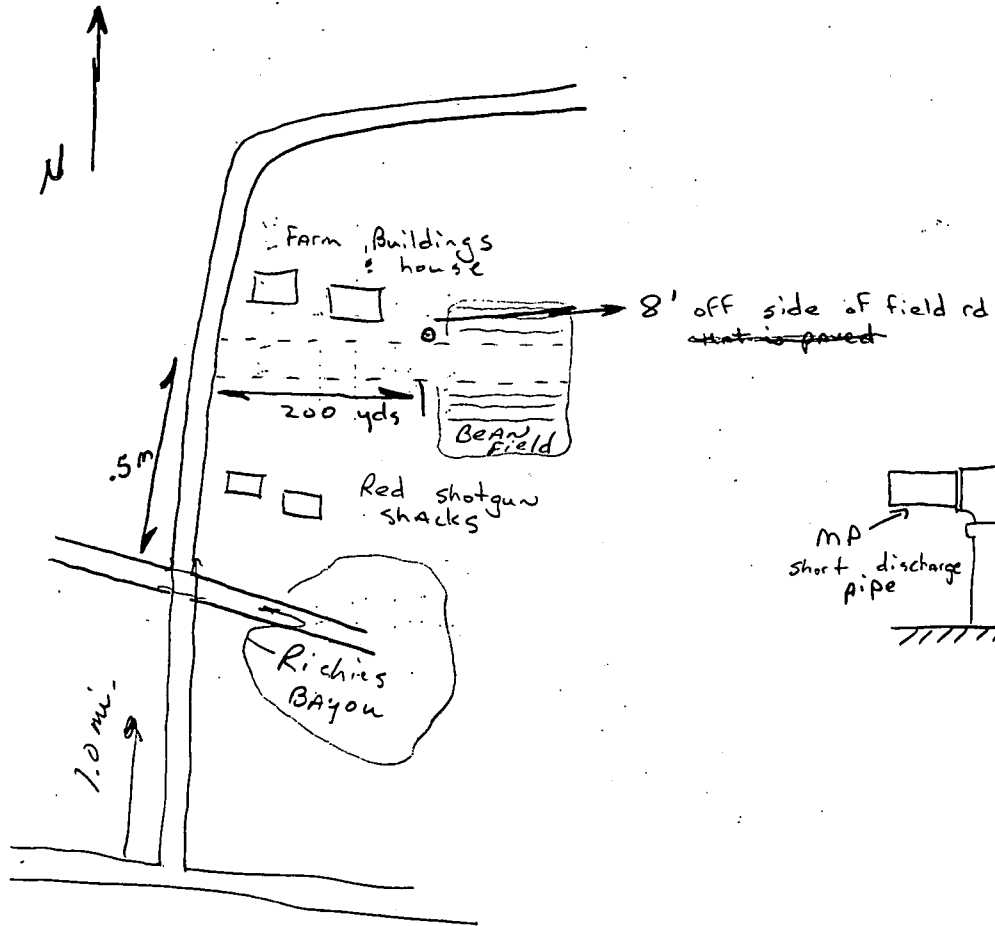 N
Farm Buildings
& house
8' off side of field rd
that is paved
200 yds
Bean
Field
.5m
Red shotgun
shacks
MP
short discharge
pipe
Richies
Bayou
1.0 mi.